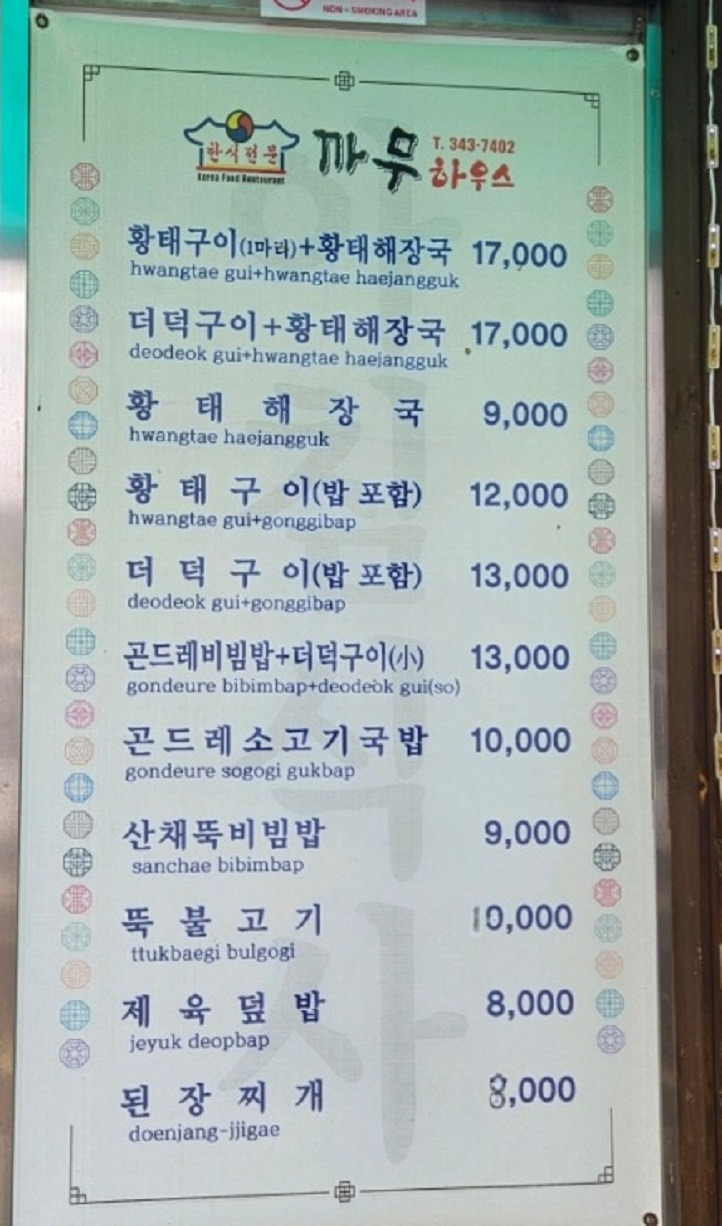 NON-SMOKING AREA
한식전문
Korea Food Restaurant
까무
T. 343-7402
하우스
황태구이(1마리)+황태해장국 17,000
hwangtae gui+hwangtae haejangguk
더덕구이+황태해장국 17,000
deodeok gui+hwangtae haejangguk
황태해장국 9,000
hwangtae haejangguk
황태구이(밥 포함) 12,000
hwangtae gui+gonggibap
더덕구이(밥 포함) 13,000
deodeok gui+gonggibap
곤드레비빔밥+더덕구이(小) 13,000
gondeure bibimbap+deodeok gui(so)
곤드레소고기국밥 10,000
gondeure sogogi gukbap
산채뚝비빔밥 9,000
sanchae bibimbap
뚝불고기 10,000
ttukbaegi bulgogi
제육덮밥 8,000
jeyuk deopbap
된장찌개 8,000
doenjang-jjigae